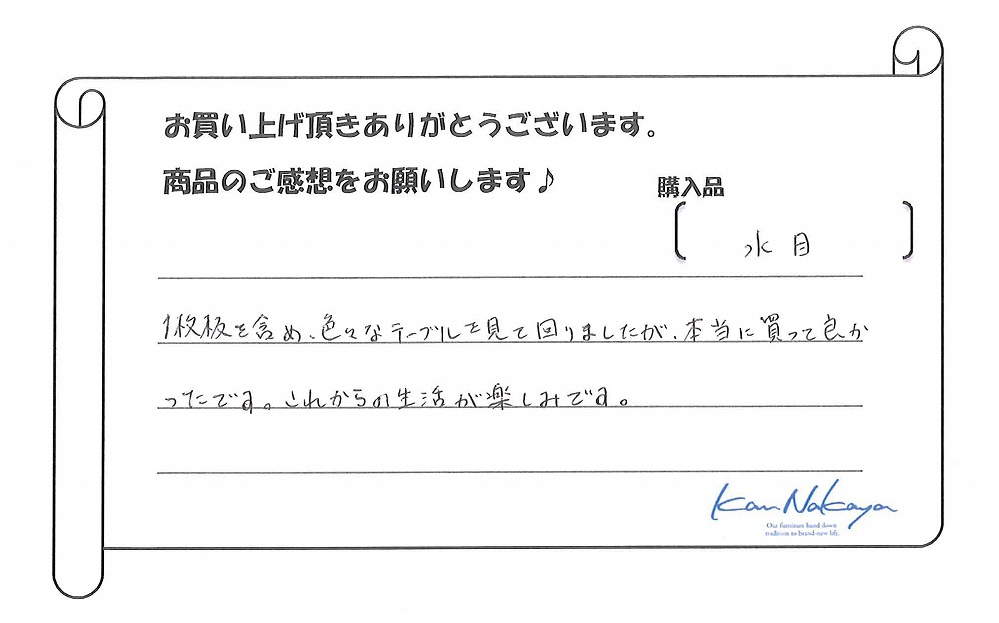 お買い上げ頂きありがとうございます。
商品のご感想をお願いします♪
購入品
水目
1枚板を含め、色々なテーブルを見て回りましたが、本当に買って良か
ったです。これからの生活が楽しみです。
Kan Nakaya
Our furniture hand down
tradition to brand-new life.